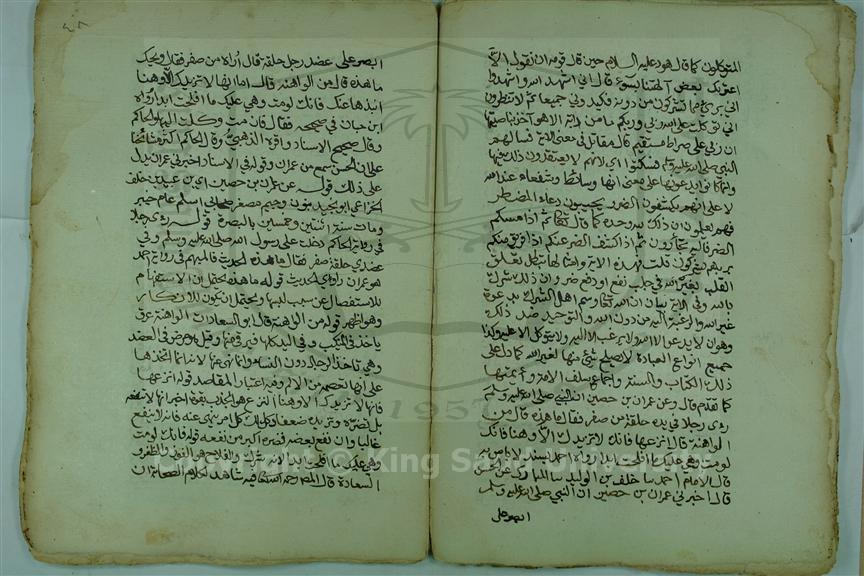 المتوكلون كما قال هود عليه السلام حين قال قومه ان نقول الا
اعتريك بعض آلهتنا بسوء قال اني اشهد الله واشهدوا
اني بريء مما تشركون من دونه فكيدوني جميعا ثم لا تنظرون
اني توكلت على الله ربي وربكم ما من دابة الا هو آخذ بناصيتها
ان ربي على صراط مستقيم قال مقاتل في معنى الاية فسألهم
النبي صلى الله عليه وسلم فسكتوا اي لانهم لا يعتقدون ذلك فيها
وانما كانوا يدعونها على معنى انها وسائط وشفعاء عند الله
لا على انهم يكشفون الضر ويجيبون دعاء المضطر
فهم يعلمون ان ذلك لله وحده كما قال تعالى ثم اذا مسكم
الضر فاليه تجأرون ثم اذا كشف الضر عنكم اذا فريق منكم
بربهم يشركون قلت فهذه الاية وامثالها تبطل تعلق
القلب بغير الله في جلب نفع او دفع ضر وان ذلك شرك
بالله وفي الاية بيان ان الله تعالى وسم اهل الشرك بدعوة
غير الله والرغبة اليه من دون الله والتوحيد ضد ذلك
وهو ان لا يدعوا الا الله ولا يرغب الا اليه ولا يتوكل الا عليه وكذا
جميع انواع العبادة لا يصلح شيء منها لغير الله كما دل على
ذلك الكتاب والسنة واجماع سلف الامة وأئمتها
كما تقدم قال وعن عمران بن حصين ان النبي صلى الله عليه وسلم
رءى رجلا في يده حلقة من صفر فقال ما هذه قال من
الواهنة قال انزعها فانك لا تزيدك الا وهنا فانك
لو مت وهي عليك ما افلحت ابدا رواه احمد بسند لا باس به
قال الامام احمد بنا خلف بن الوليد بنا المبارك عن الحسن
قال اخبرني عمران بن حصين ان النبي صلى الله عليه وسلم
ابصر على
ابصر على عضد رجل حلقة قال أراه من صفر فقال ويحك
ما هذه قال من الواهنة قال اما انها لا تزيدك الا وهنا
انبذها عنك فانك لو مت وهي عليك ما افلحت ابدا رواه
ابن حبان في صحيحه فقال فانك مت وكلت اليها والحاكم
وقال صحيح الاسناد واقره الذهبي وقال الحاكم اكثر مشائخنا
على ان الحسن سمع من عمران وقوله في الاسناد اخبرني عمران يدل
على ذلك قوله عن عمران بن حصين اي بن عبيد بن خلف
الخزاعي ابو نجيد بنون وجيم مصغر صحابي اسلم عام خيبر
ومات سنة اثنتين وخمسين بالبصرة قوله رءى رجلا
في رواية الحاكم دخلت على رسول الله صلى الله عليه وسلم وفي
عضدي حلقة صفر فقال ما هذه الحديث فالمبهم في رواية احمد
هو عمران راوي الحديث قوله ما هذه يحتمل ان الاستفهام
للاستفصال عن سبب لبسها ويحتمل ان يكون للانكار
وهو اظهر قوله من الواهنة قال ابو السعادات الواهنة عرق
ياخذ في المنكب وفي اليد كلها فيرقى منها وقيل هو مرض في العضد
وهي تاخذ الرجال دون النساء وانما نهى عنها لانه انما اتخذها
على انها تعصمه من الالم وفيه اعتبار المقاصد قوله انزعها
فانها لا تزيدك الا وهنا النزع هو الجذب بقوة اخبر انها لا تنفعه
بل تضره وتزيده ضعفا وكذلك كل امر نهي عنه فانه لا ينفع
غالبا وان نفع بعضه فضره اكبر من نفعه قوله فانك لو مت
وهي عليك ما افلحت ابدا لانه شرك والفلاح هو الفوز والظفر و
السعادة قال المص رحمه الله تعالى فيه شاهد لكلام الصحابة ان